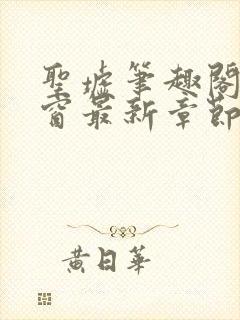 聖墟筆趣閣
窗最新章節
黄日華